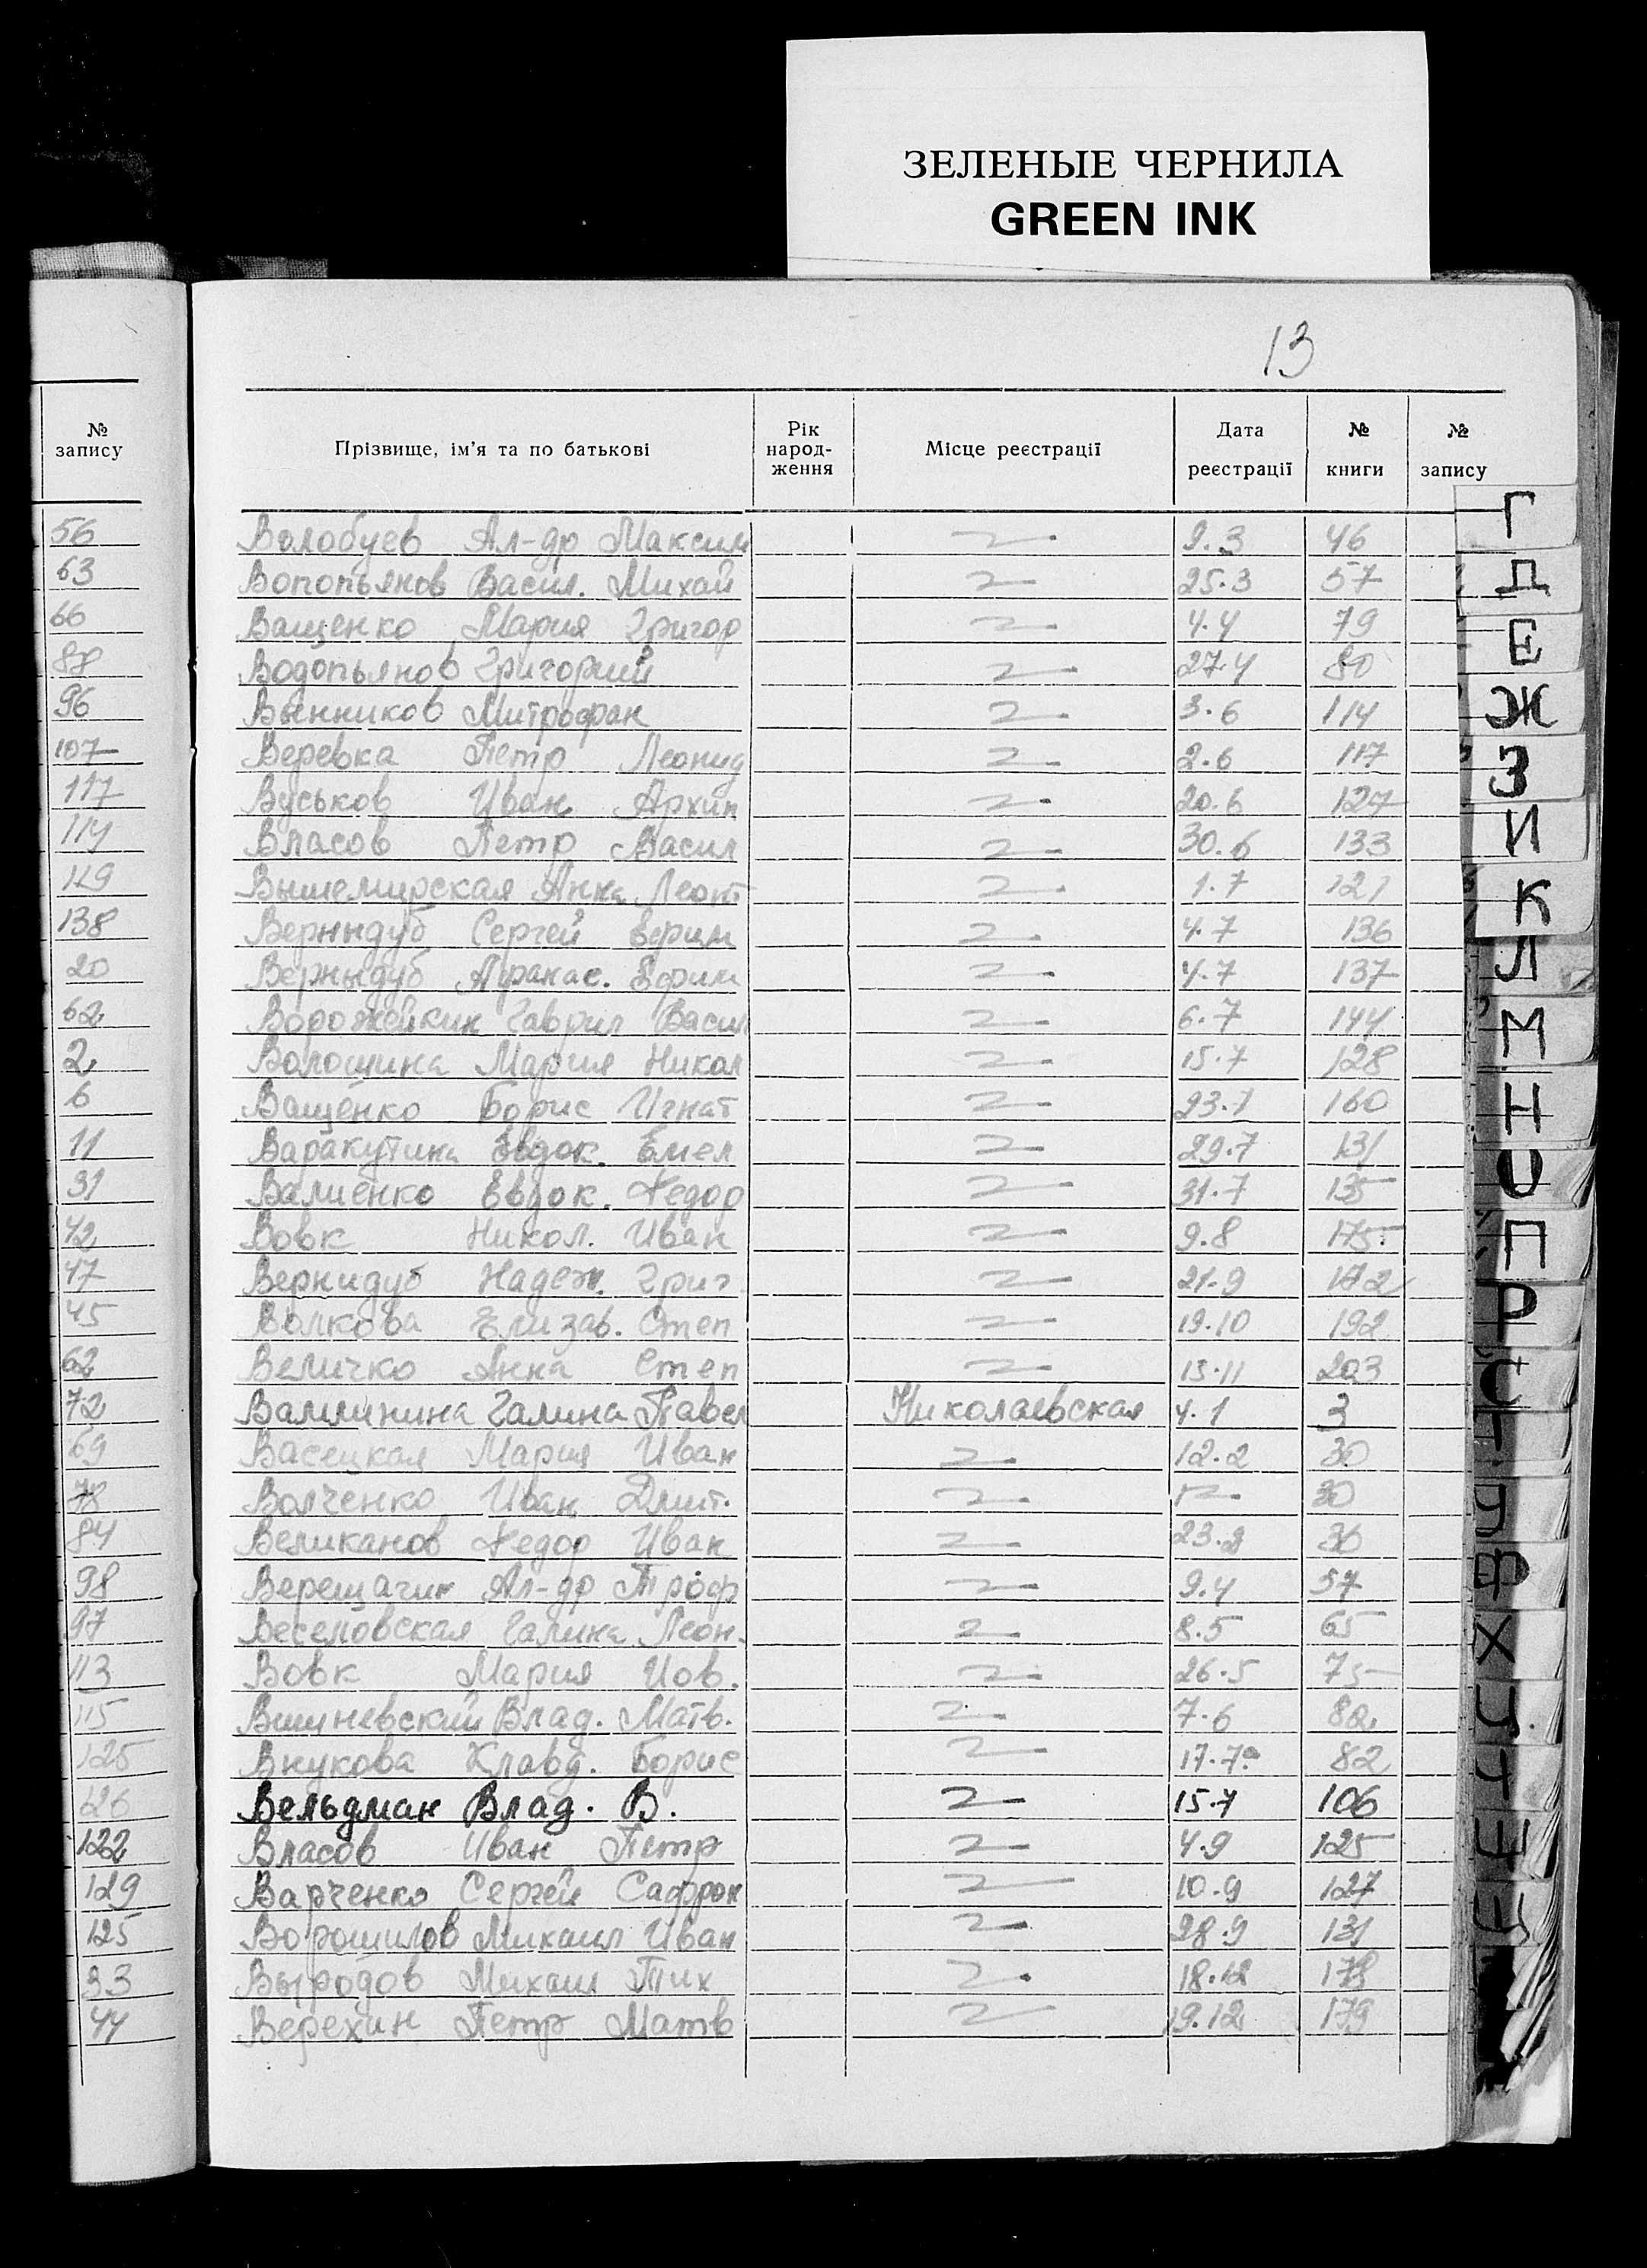 ЗЕЛЕНЫЕ ЧЕРНИЛА
GREEN INK
13
№ запису
Прізвище, ім'я та по батькові
Рік народ-ження
Місце реєстрації
Дата реєстрації
№ книги
№ запису
56 Волобуев Ал-др Максим 9.3 46
63 Вопопьянов Васил. Михай 25.3 57
66 Ващенко Мария Григор 4.4 79
88 Водопьянов Григорий 27.4 80
96 Вынников Митрофан 3.6 114
107 Веревка Петр Леонид 2.6 117
117 Вуськов Иван Архип 20.6 127
114 Власов Петр Васил 30.6 133
119 Вышемирская Анна Леонт 1.7 121
138 Верныдуб Сергей Ефим 4.7 136
20 Верныдуб Афанас. Ефим 4.7 137
62 Ворожейкин Гаврил Васил 6.7 144
2 Волошина Мария Никол 15.7 128
6 Ващенко Борис Игнат 23.7 160
11 Варакутина Евдок. Емел 29.7 131
31 Валиенко Евдок. Федор 31.7 135
42 Вовк Никол. Иван 9.8 175
47 Вернидуб Надеж. Григ 21.9 172
45 Волкова Елизав. Степ 19.10 192
62 Величко Анна Степ 13.11 203
72 Галина Павел Николаевская 4.1 3
69 Васецкая Мария Иван 12.2 30
78 Волченко Иван Дмит. 30
84 Великанов Федор Иван 23.2 36
98 Верещагин Ал-др Троф 9.4 57
97 Веселовская Галина Леон. 8.5 65
113 Вовк Мария Иов. 26.5 75
115 Вишневский Влад. Матв. 7.6 82
125 Внукова Клавд. Борис 17.7 82
126 Вельдман Влад. В. 15.7 106
122 Власов Иван Петр 4.9 125
129 Варченко Сергей Сафрон 10.9 127
125 Ворошилов Михаил Иван 28.9 131
33 Выродов Михаил Тих 18.12 178
44 Верехин Петр Матв 19.12 179
Г
Д
Е
Ж
З
И
К
Л
М
Н
О
П
Р
С
Т
Ф
Х